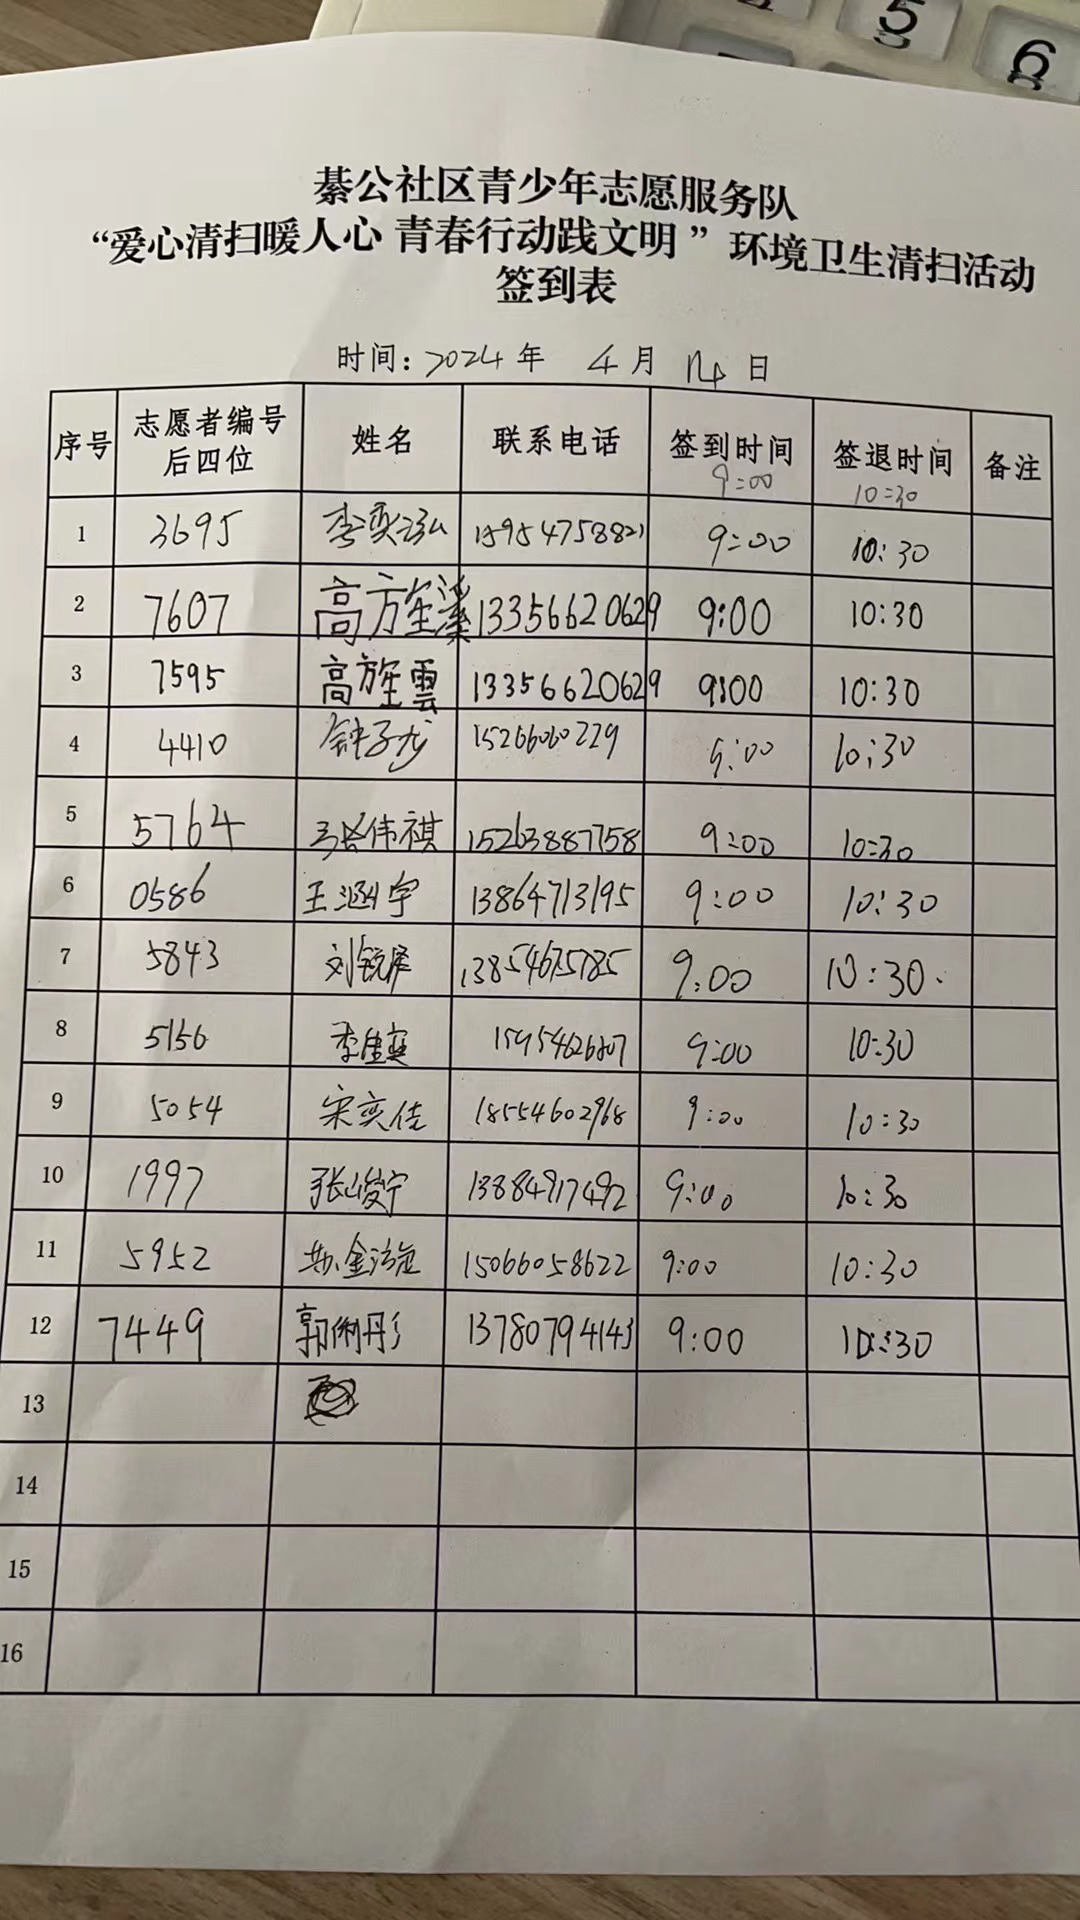 5
6
綦公社区青少年志愿服务队
“爱心清扫暖人心 青春行动践文明” 环境卫生清扫活动
签到表
时间: 2024 年 4 月 14 日
序号 志愿者编号后四位 姓名 联系电话 签到时间 9:00 签退时间 10:30 备注
1 3695 李奕泓 15954758821 9:00 10:30
2 7607 高旌溪 13356620629 9:00 10:30
3 7595 高旌雲 13356620629 9:00 10:30
4 4410 钟子龙 15266060229 9:00 10:30
5 5764 张伟祺 15263887758 9:00 10:30
6 0586 王涵宇 13864713195 9:00 10:30
7 5843 刘锐 13854675785 9:00 10:30
8 5156 李佳奕 15954626807 9:00 10:30
9 5054 宋奕佳 18554602968 9:00 10:30
10 1997 张峻宁 13884917492 9:00 10:30
11 5952 苏金 15066058622 9:00 10:30
12 7449 郭俐彤 13780794143 9:00 10:30
13
14
15
16